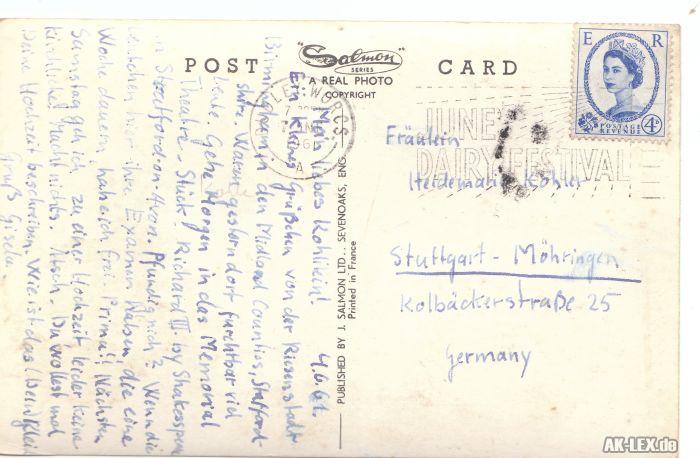 POST
"Salmon"
SERIES
A REAL PHOTO
COPYRIGHT
CARD
E R
POSTAGE
REVENUE
4D
JUNE
DAIRY FESTIVAL
WORCS
A
Fräulein
Heidemarie Kohler
Stuttgart - Möhringen
Kolbäckerstraße 25
Germany
PUBLISHED BY J. SALMON LTD., SEVENOAKS, ENG.
Printed in France
4.6.61.
Mein liebes Kohllein!
Ein kleines Grüßchen von der Riesenstadt
Birmingham in den Midland Counties, Stafford-
shire. Waren gestern dort furchtbar viel
Leute. Gehe Morgen in das Memorial
Theatre - Stück! Richard III. by Shakespeare
in Stratford-on-Avon. Pfundig nich? Wenn die
hier ihre Examen haben die eine
Woche dauern, hab ich frei. Prima! Nächsten
Samstag geh ich zu einer Hochzeit leider keine
kirchliche. Macht nichts. Du wolltest mal
Deine Hochzeit beschreiben. Wie ist das (Dein) Kleid
Gruß Gisela.
AK-LEX.de